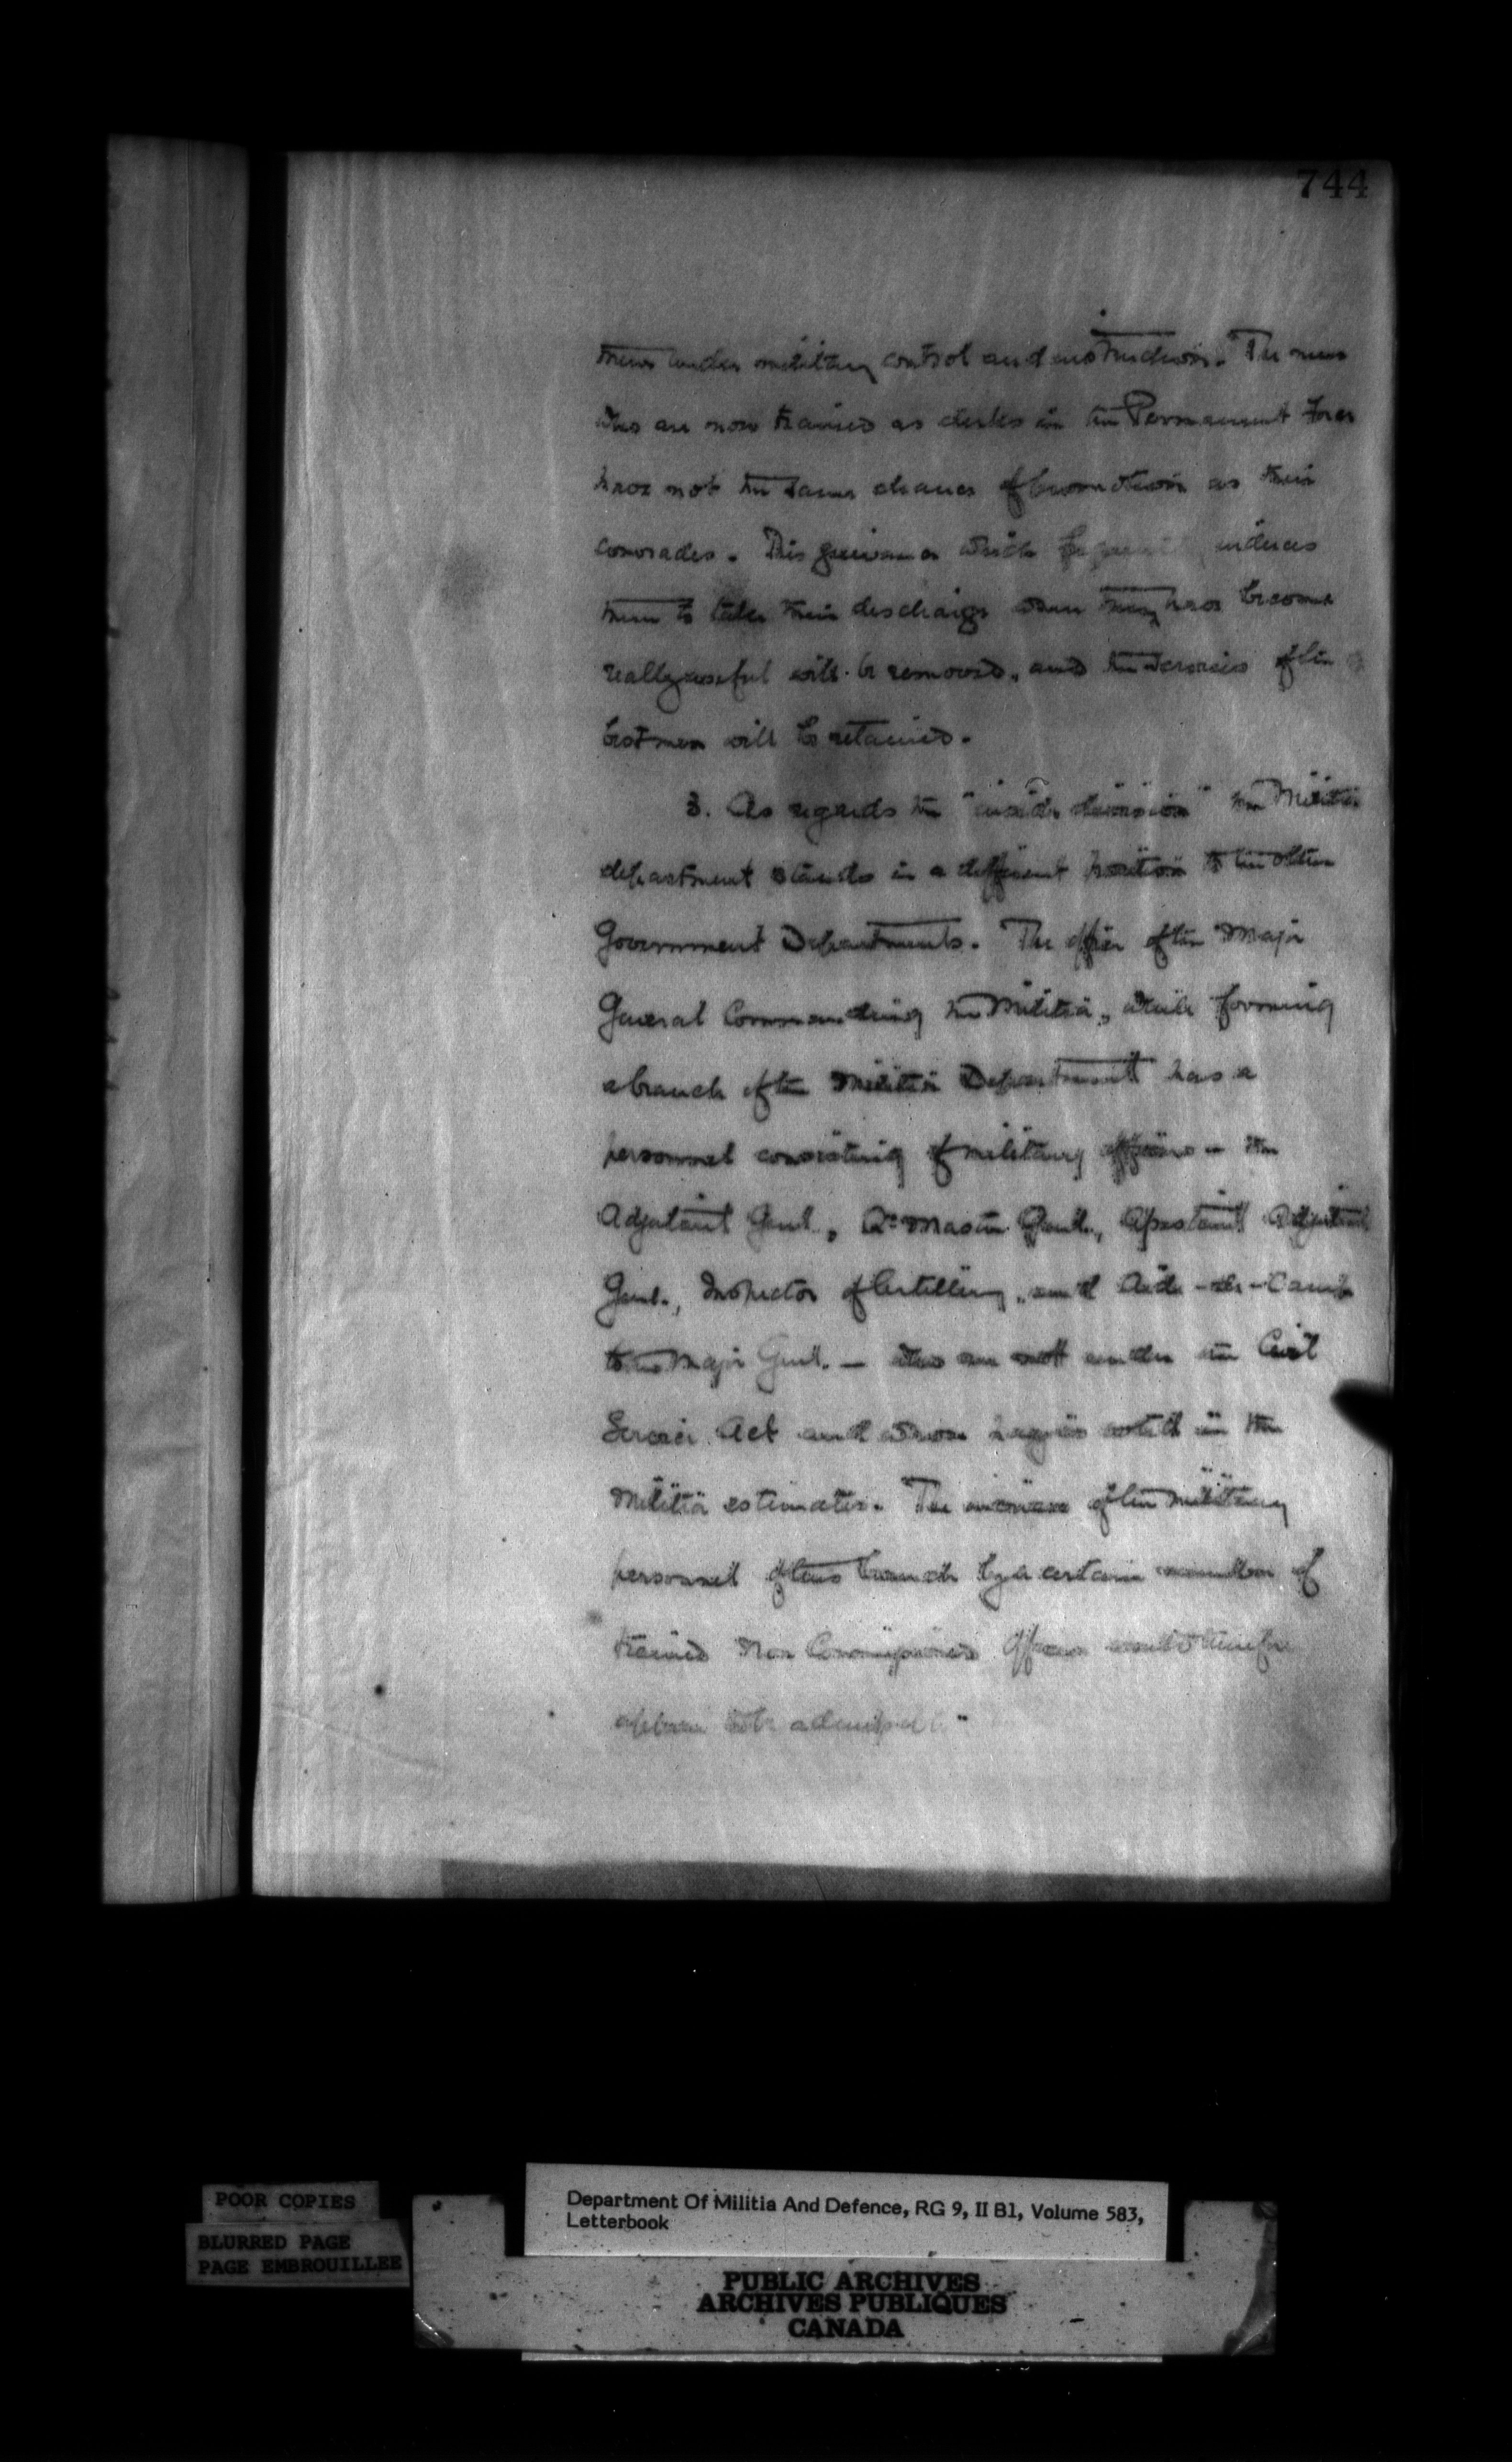 744
them under military control and instruction. The men
who are now trained as clerks in the Permanent Force
have not the same chance of promotion as their
comrades. This grievance which induces
them to take their discharge when they have become
really useful will be removed, and the services of the
best men will be retained.
3. As regards the "inside division" the Militia
department stands in a different position to the other
Government Departments. The office of the Major
General Commanding the Militia, while forming
a branch of the Militia Department has a
personnel consisting of military officers - the
Adjutant Genl., Qr. Master Genl., Assistant Adjutant
Genl., Inspector of Artillery, and Aide-de-Camp
to the Major Genl. — who are not under the Civil
Service Act and whose pay is voted in the
Militia estimates. The increase of the military
personnel of this branch by a certain number of
trained Non Commissioned Officers would therefore
appear to be
POOR COPIES
BLURRED PAGE
PAGE EMBROUILLEE
Department Of Militia And Defence, RG 9, II B1, Volume 583,
Letterbook
PUBLIC ARCHIVES
ARCHIVES PUBLIQUES
CANADA